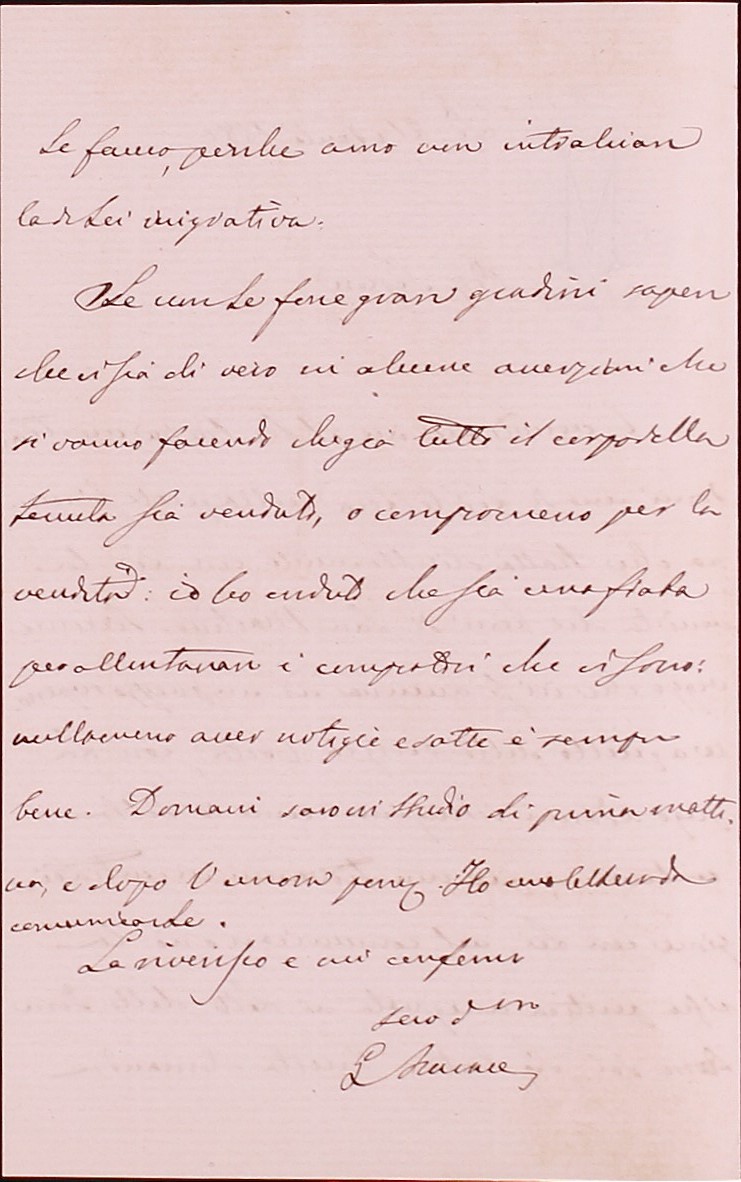 Le facco, perche amo non intralciare
la di Lei inigiativa.
Se non Le fosse gran giudizii sapere
che vi sia di vero in alcune asserzioni che
si vanno facendo che già tutto il corpo della
tenuta sia venduto, o compromesso per la
vendita: io ho creduto che sia una fiaba
per allontanare i compratori che vi sono:
nullameno aver notizie esatte è sempre
bene. Domani sarò in Studio di prima matti-
na, e dopo l'una pom. Ho una lettera da
comunicarle.
La riverisco e mi confermo